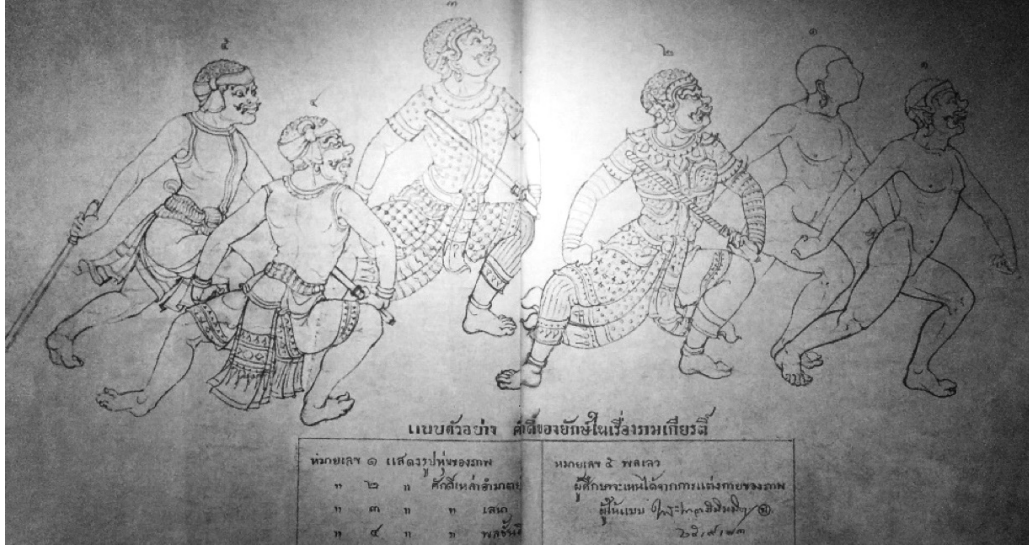 ๕
๔
๓
๒
๑
๑
แบบตัวอย่าง ศักดิ์ของยักษ์ในเรื่องรามเกียรติ์
หมายเลข ๑ แสดงรูปหุ่นของภาพ
" ๒ " ศักดิ์เหล่าอำมาตย์
" ๓ " " เสนา
" ๔ " "
หมายเลข ๕ พลเลว
ผู้ศึกษาจะเห็นได้จากการแต่งกายของภาพ
ผู้ให้แบบ